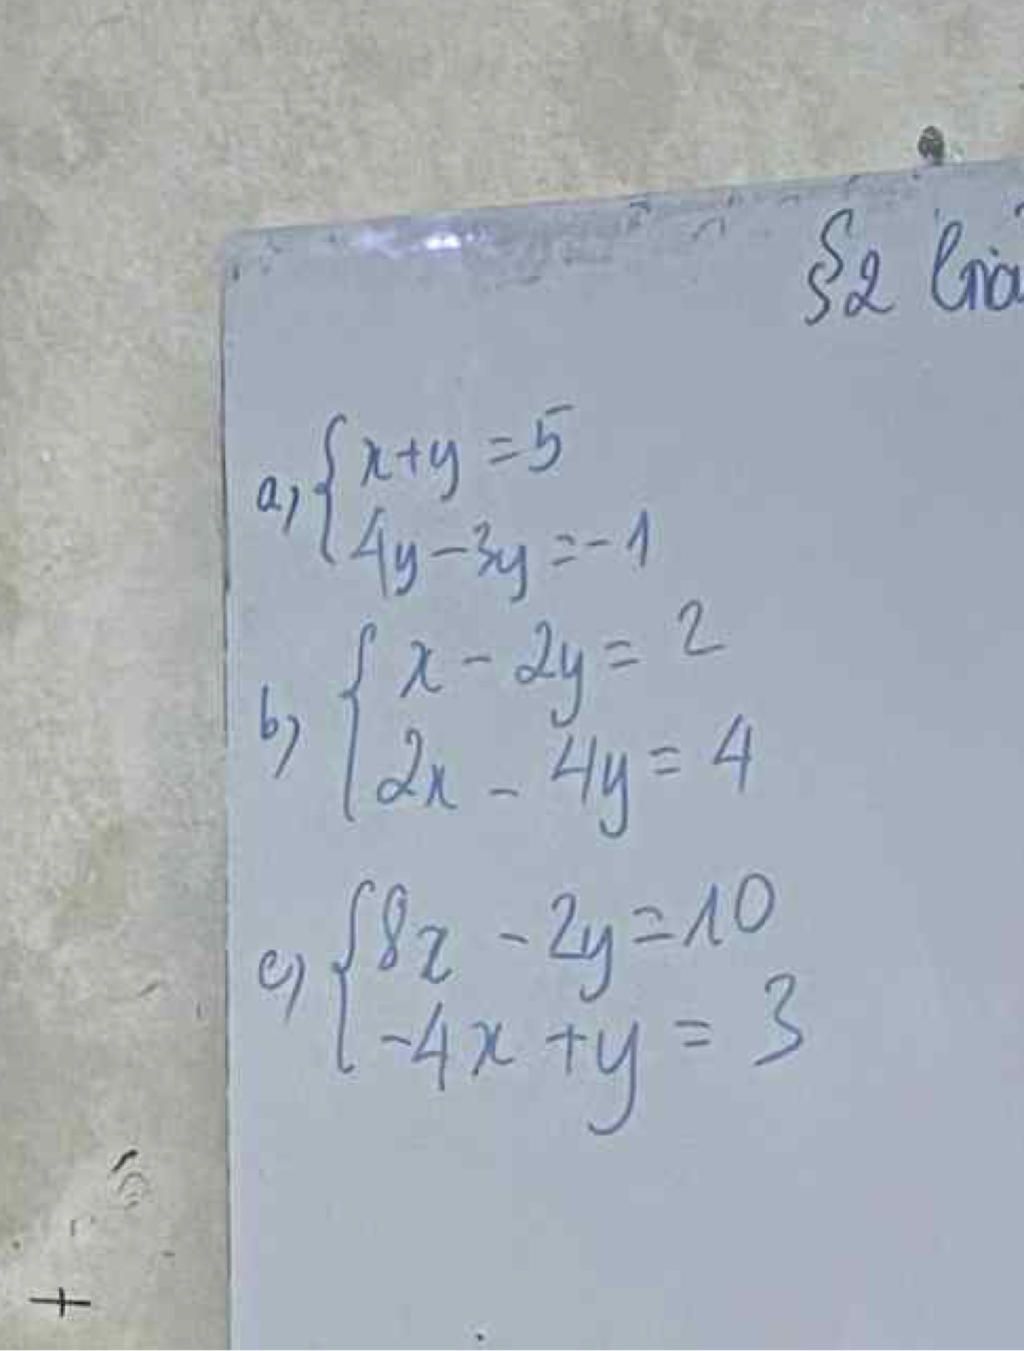 §2 Giả
a) { x+y = 5
4y - 3y = -1
b) { x - 2y = 2
2x - 4y = 4
c) { 8x - 2y = 10
-4x + y = 3